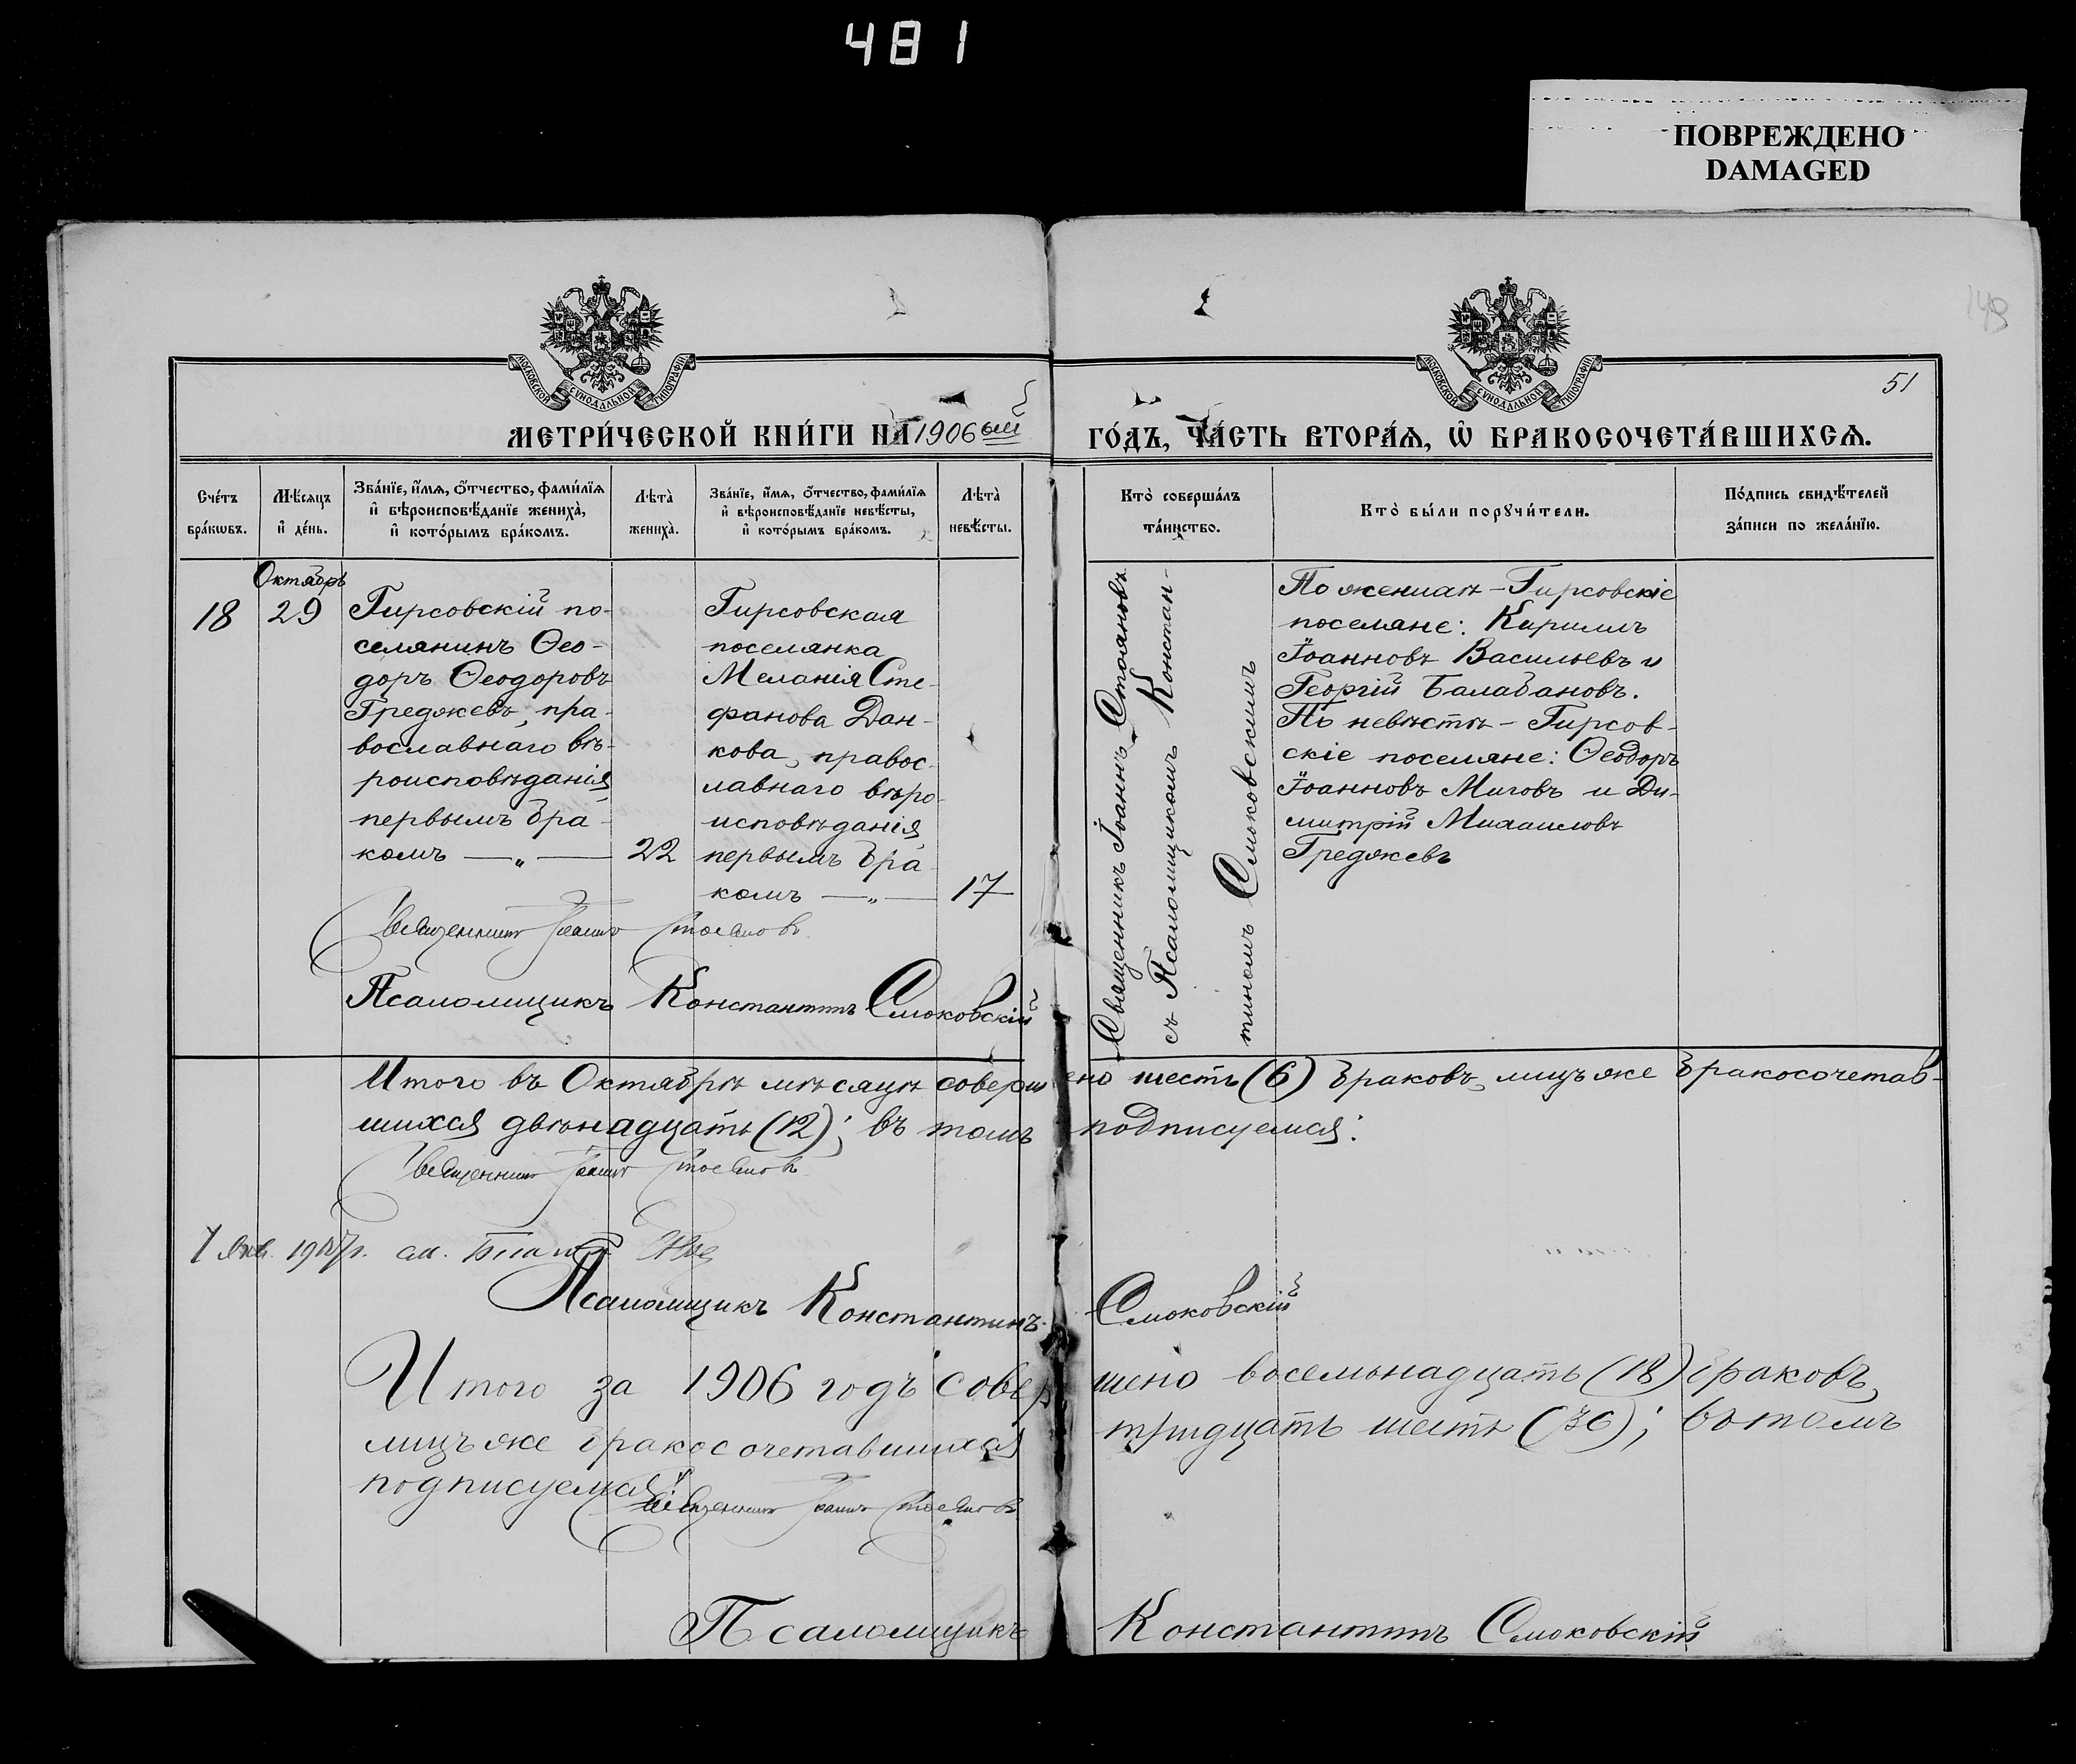 481
ПОВРЕЖДЕНО
DAMAGED
149
51
МОСКОВСКОЙ СУНОДАЛЬНОЙ ТИПОГРАФІИ
МОСКОВСКОЙ СУНОДАЛЬНОЙ ТИПОГРАФІИ
МЕТРИ́ЧЕСКОЙ КНИ́ГИ НА 1906ый ГО́ДЪ, ЧА́СТЬ ВТОРА́Ѧ, Ѡ҆ БРАКОСОЧЕТА́ВШИХСѦ.
Сче́тъ
бра́кωвъ.
Мѣ́сѧцъ
и҆ де́нь.
Зва́нїе, и҆́мѧ, ѻ҆́тчество, фами́лїѧ
и҆ вѣроисповѣ́данїе жениха̀,
и҆ кото́рымъ бра́комъ.
Лѣ́та̀
жениха̀.
Зва́нїе, и҆́мѧ, ѻ҆́тчество, фами́лїѧ
и҆ вѣроисповѣ́данїе невѣ́сты,
и҆ кото́рымъ бра́комъ.
Лѣ́та̀
невѣ́сты.
Кто̀ соверша́лъ
та́инство.
Кто̀ бы́ли порꙋчи́тели.
По́дпись свидѣ́телей
за́писи по жела́нїю.
18
Октябрь
29
Гирсовскій по-
селянинъ Ѳео-
доръ Ѳеодоровъ
Греджевъ, пра-
вославнаго вѣ-
роисповѣданія,
первымъ бра-
комъ — „ —
22
Гирсовская
поселянка
Меланія Сте-
фанова Дан-
кова, правос-
лавнаго вѣро-
исповѣданія,
первымъ бра-
комъ — „ —
17
Священникъ Іоаннъ Стояновъ
съ Псаломщикомъ Констан-
тиномъ Смоковскимъ
По женихѣ – Гирсовскіе
поселяне: Кириллъ
Іоанновъ Васильевъ и
Георгій Балабановъ.
По невѣстѣ – Гирсов-
скіе поселяне: Ѳеодоръ
Іоанновъ Миговъ и Ди-
митрій Михаиловъ
Греджевъ
Священникъ Іоаннъ Стояновъ
Псаломщикъ Константинъ Смоковскій
Итого въ Октябрѣ мѣсяцѣ совершено шесть (6) браковъ, лицъ же бракосочетав-
шихся двѣнадцать (12); въ томъ подписуемся:
Священникъ Іоаннъ Стояновъ
7 Янв. 1907 г.
Псаломщикъ Константинъ Смоковскій
Итого за 1906 годъ совершено восемьнадцать (18) браковъ,
лицъ же бракосочетавшихся тридцать шесть (36); въ томъ
подписуемся:
Священникъ Іоаннъ Стояновъ
Псаломщикъ Константинъ Смоковскій